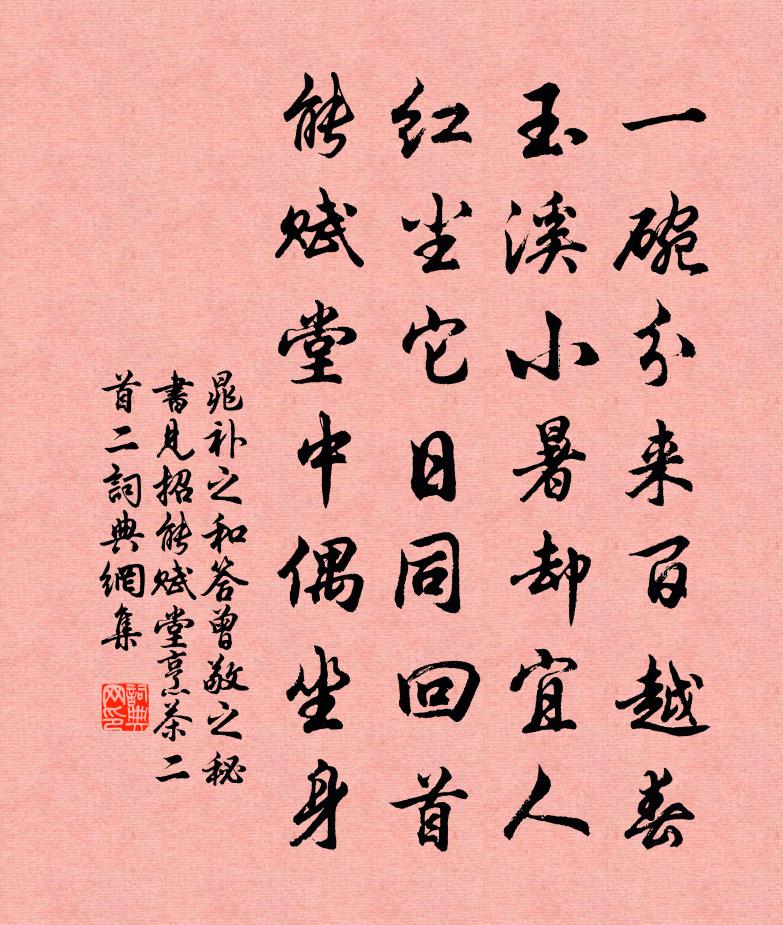 一碗分来百越春
玉溪小暑却宜人
红尘它日同回首
能赋堂中偶坐身
晁补之和答曾敬之秘
書見招能赋堂烹茶二
首二詞典網集
詞典网印